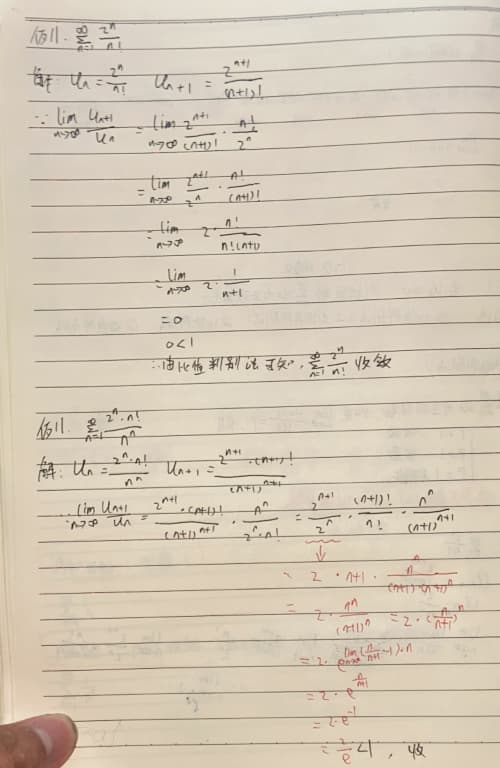 例1. ∑_{n=1}^{∞} 2^n/n!
解: Un = 2^n/n! Un+1 = 2^{n+1}/(n+1)!
∵ lim_{n→∞} Un+1/Un = lim_{n→∞} 2^{n+1}/(n+1)! · n!/2^n
= lim_{n→∞} 2^{n+1}/2^n · n!/(n+1)!
= lim_{n→∞} 2 · n!/(n!(n+1))
= lim_{n→∞} 2 · 1/(n+1)
= 0
0<1
∴ 由比值判别法可知, ∑_{n=1}^{∞} 2^n/n! 收敛
例1. ∑_{n=1}^{∞} 2^n·n!/n^n
解: Un = 2^n·n!/n^n Un+1 = 2^{n+1}·(n+1)!/(n+1)^{n+1}
∵ lim_{n→∞} Un+1/Un = 2^{n+1}·(n+1)!/(n+1)^{n+1} · n^n/(2^n·n!) = 2^{n+1}/2^n · (n+1)!/n! · n^n/(n+1)^{n+1}
↓
= 2 · n+1 · n^n/((n+1)·(n+1)^n)
= 2 · n^n/(n+1)^n = 2·(n/(n+1))^n
= 2 · e^{lim_{n→∞}(n/(n+1) -1)·n}
= 2 · e^{-n/(n+1)}
= 2·e^{-1}
= 2/e <1, 收